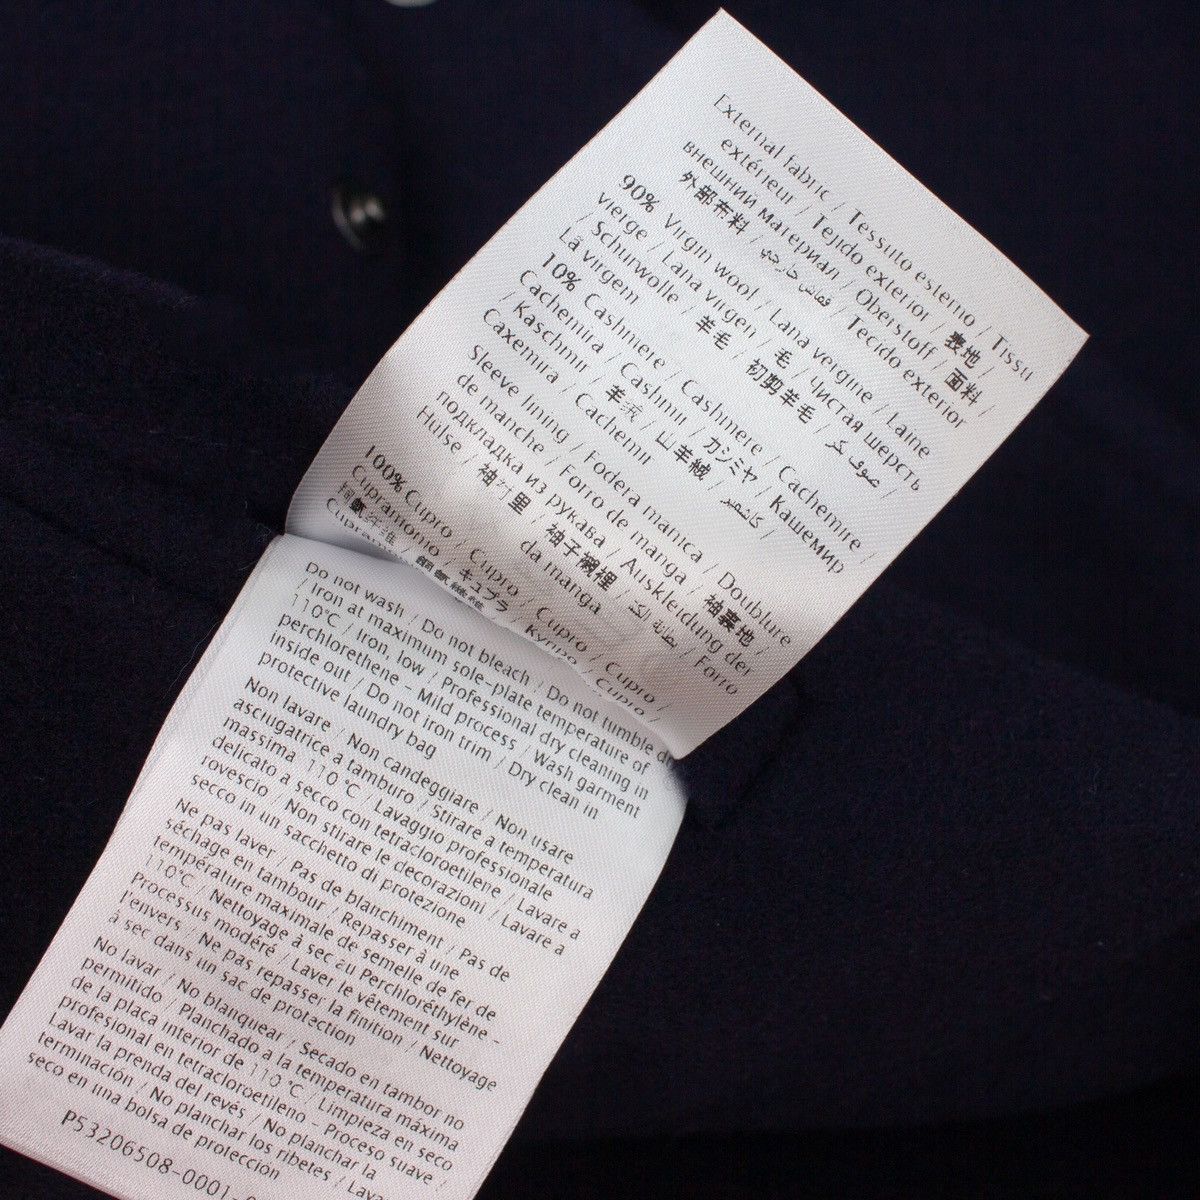 External fabric / Tessuto esterno / Tissu
extérieur / Tejido exterior / 表地 /
внешний материал / Oberstoff / 面料 /
外部布料 / قماش خارجي / Tecido exterior
90% Virgin wool / Lana vergine / Laine
vierge / Lana virgen / 毛 / Чистая шерсть
/ Schurwolle / 羊毛 / 初剪羊毛 / صوف بكر /
Lã virgem
10% Cashmere / Cashmere / Cachemire /
Cachemira / Cashmir / カシミヤ / Кашемир
/ Kaschmir / 羊绒 / 山羊絨 / كاشمير /
Caxemira / Cachemir
Sleeve lining / Fodera manica / Doublure
de manche / Forro de manga / 袖裏地 /
подкладка из рукава / Auskleidung der
Hülse / 袖衬里 / 袖子襯裡 / Forro
da manga
100% Cupro / Cupro / Cupro / Cupro /
Cupramonio / キュプラ / купро / Cupro /
Do not wash / Do not bleach / Do not tumble
/ Iron at maximum sole-plate temperature of
110°C / Iron, low / Professional dry cleaning in
perchlorethene - Mild process / Wash garment
inside out / Do not iron trim / Dry clean in
protective laundry bag
Non lavare / Non candeggiare / Non usare
asciugatrice a tamburo / Stirare a temperatura
massima 110°C / Lavaggio professionale
delicato a secco con tetracloroetilene / Lavare a
rovescio / Non stirare le decorazioni / Lavare a
secco in un sacchetto di protezione
Ne pas laver / Pas de blanchiment / Pas de
séchage en tambour / Repasser à une
température maximale de semelle de fer de
110°C / Nettoyage à sec au Perchloréthylène -
Processus modéré / Laver le vêtement sur
l'envers / Ne pas repasser la finition / Nettoyage
à sec dans un sac de protection
No lavar / No blanquear / Secado en tambor no
permitido / Planchado a la temperatura máxima
de la placa interior de 110°C / Limpieza en seco
profesional en tetracloroetileno - Proceso suave /
Lavar la prenda del revés / No planchar la
terminación / No planchar los ribetes / Lavar
seco en una bolsa de protección
P53206508-0001-